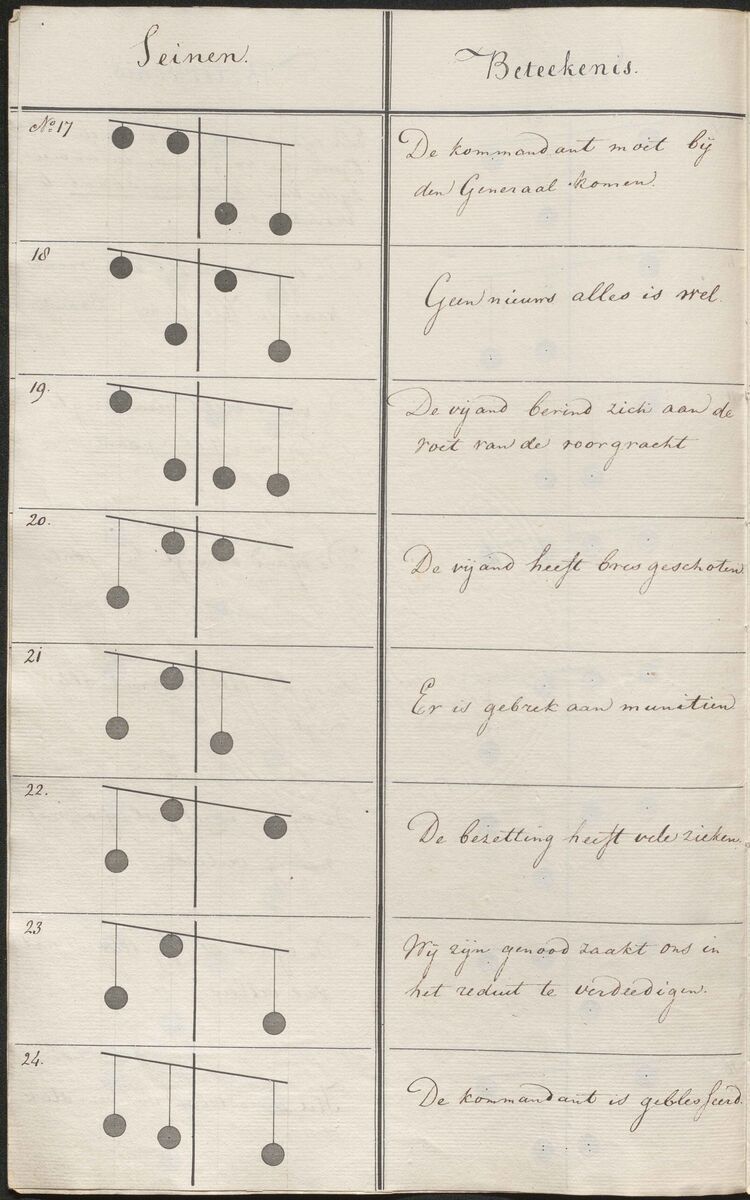 Seinen.
Beteekenis.
No. 17
De kommandant moet bij
den Generaal komen.
18
Geen nieuws alles is wel.
19.
De vijand bevind zich aan de
voet van de voorgracht
20.
De vijand heeft bres geschoten
21
Er is gebrek aan munitien
22.
De bezetting heeft vele zieken.
23
Wij zijn genood zaakt ons in
het reduit te verdedigen.
24.
De kommandant is geblesseerd.